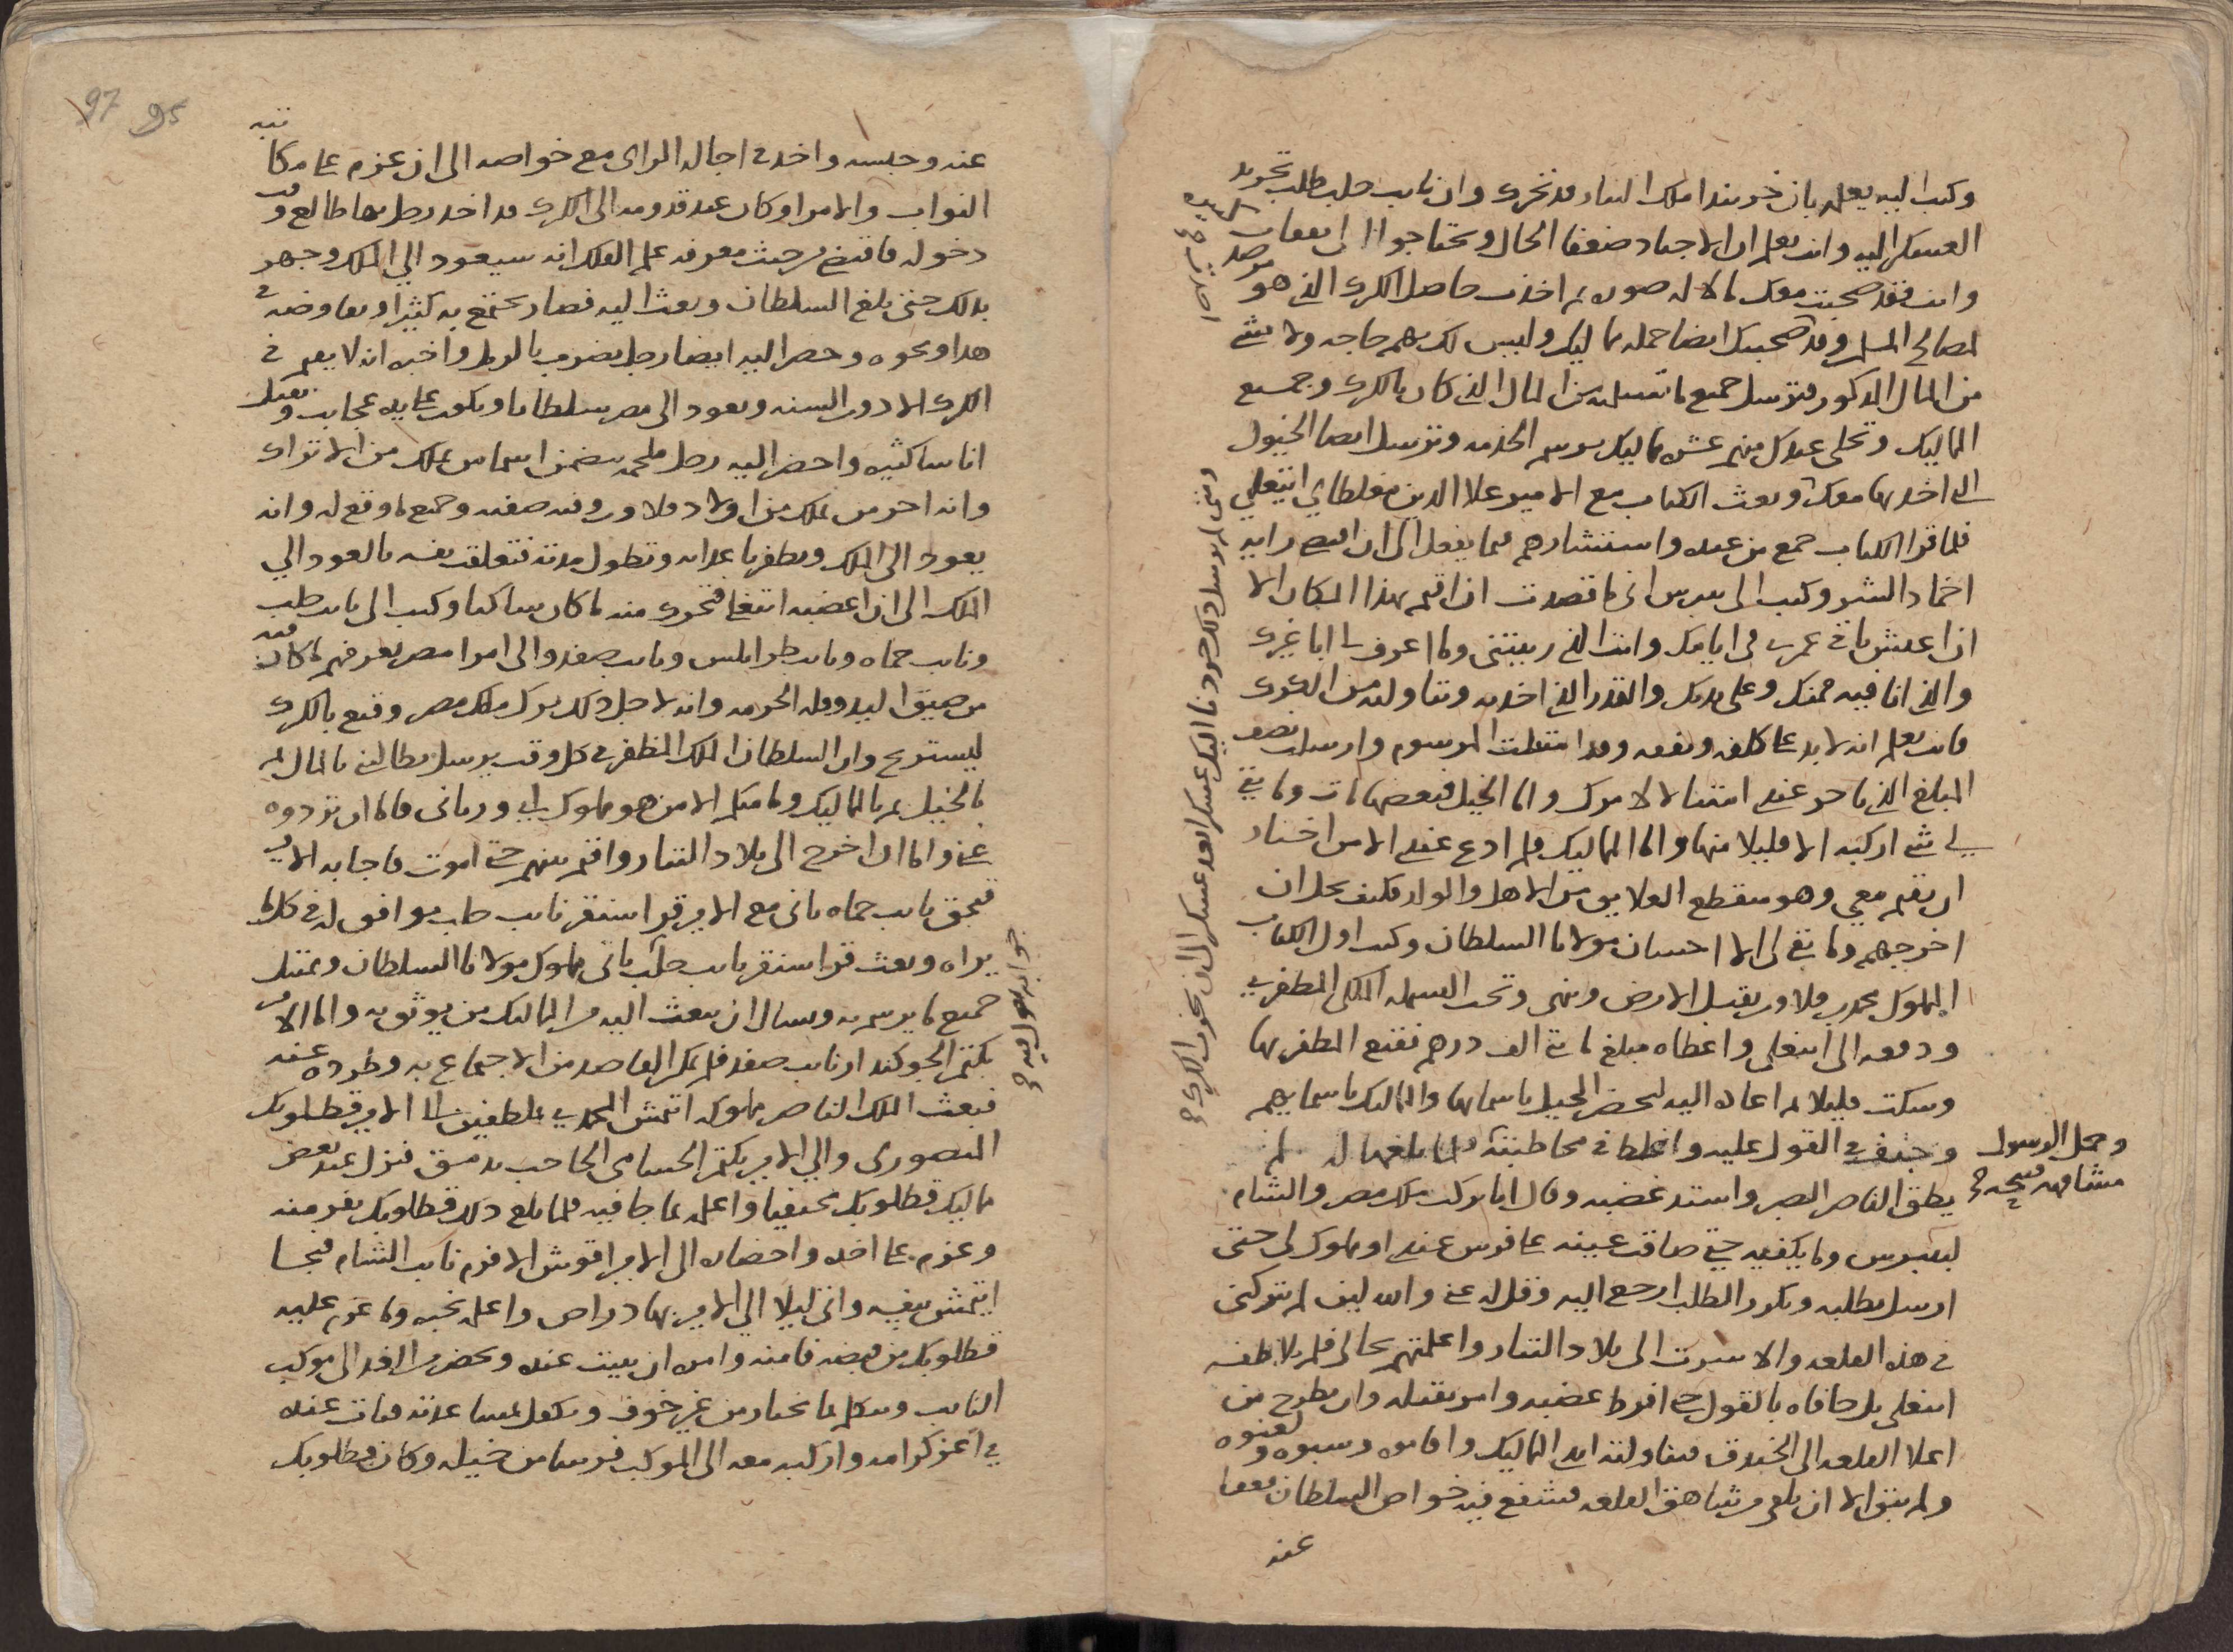 وكتب اليه يعلمه بان خربندا ملك التتار قد تحرك وان نايب حلب طلب تجريد
العسكر اليه وانت تعلم ان الاجناد ضعفا الحال ويحتاجوا الى نفقات كثيره
وانت فقد صحبت معك مالا له صوره ثم اخذت حاصل الكرك الذي هو مرصد
لمصالح المسلمين وقد صحبك ايضا جمله مماليك وليس لك بهم حاجه ولا بشي
من المال المذكور فترسل جميع ما تسلمته من المال الذي كان بالكرك وجميع
المماليك وتخلي عندك منهم عشره مماليك برسم الخدمه وترسل ايضا الخيول
التي اخذتها معك وبعث الكتاب مع الامير علا الدين مغلطاي ايتغلي
فلما قرا الكتاب جمع من عنده واستشارهم فيما يفعل الى ان اقتضى رايه
اخماد الشر وكتب الى بيبرس اني ما قصدت ان اقيم بهذا المكان الا
ان اعيش باقي عمري في ايامك وانت الذي ربيتني وما اعرف لي ابا غيرك
والذي انا فيه فمنك وعلى يديك والقدر الذي اخذته وتناولته من الكرك
فانت تعلم انه لا بد على كلفه ونفقه وقد امتثلت المرسوم وارسلت نصف
المبلغ الذي تاخر عندي امتثالا لامرك واما الخيل فبعضها مات وما بقي
لي شي اركبه الا قليلا منها واما المماليك فلم ادع عندي الا من اختار
ان يقيم معي وهو منقطع العلايق من الاهل والولد فكيف يحل ان
اخرجهم وما بقي لي الا احسان مولانا السلطان وكتب اول الكتاب
المملوك محمد بن قلاون يقبل الارض وينهي وتحت البسمله الملكي المظفري
ودفعه الى ايتغلي واعطاه مبلغ مايتي الف درهم فقنع المظفر بها
وسكت قليلا ثم اعاده اليه ليحضر الخيل باسمايها والمماليك باسمايهم
وحمل الرسول مشافهه قبيحه
وخشف في القول عليه واغلظ في مخاطبته فلما بلغها له لم
يطق الناصر الصبر واشتد غضبه وقال انا تركت ملك مصر والشام
لبيبرس وما يكفيه حتى ضاقت عينه على فرس عندي او مملوك لي حتى
ارسل يطلبه ويكرر الطلب ارجع اليه وقل له عني والله لين لم يتركني
في هذه القلعه والا سرت الى بلاد التتار واعلمتهم بحالي فلم يلاطفه
ايتغلي بل جافاه بالقول حتى افرط غضبه وامر بقتله وان يطرح من
اعلا القلعه الى الخندق فتناولته ايدي المماليك واقاموه وسبوه ولعنوه
ولم يبق الا ان يلقى من شاهق القلعه فشفع فيه خواص السلطان فعفا
عنه
97 95
عنه وحبسه واخذ في اجاله الراي مع خواصه الى ان عزم على مكاتبه
النواب والامرا وكان عند قدومه الى الكرك قد اخذ رجل بها طالع وقت
دخوله فاقتضى من حيث معرفه علم الفلك انه سيعود الي الملك وجهر
بذلك حتى بلغ السلطان وبعث اليه فصار يجتمع به كثيرا ويفاوضه في
هذا ونحوه وحضر اليه ايضا رجل يضرب بالرمل واخبره انه لا يقيم في
الكرك الا دون السنه ويعود الى مصر سلطانا ويكون على يده عجايب ويقتل
اناسا كثيره واحضر اليه رجل ملحمه يتضمن اسما من يملك من الاتراك
وانه اخر من يملك من اولاد قلاون وفيه صفته وجميع ما وقع له وانه
يعود الى الملك ويظفر باعدايه وتطول مدته فتعلقت نفسه بالعود الي
الملك الى ان اغضبه ايتغلي فتحرك منه ما كان ساكنا وكتب الى نايب حلب
ونايب حماه ونايب طرابلس ونايب صفد والى امرا مصر يعرفهم ما كان فيه
من ضيق اليد وقله الحرمه وانه لاجل ذلك ترك ملك مصر وقنع بالكرك
ليستريح وان السلطان الملك المظفر في كل وقت يرسل يطالبني بالمال ثم
بالخيل ثم بالمماليك وما منكم الا من هو مملوك ابي ورباني فاما ان تردوه
عني واما ان اخرج الى بلاد التتار واقيم بينهم حتى اموت فاجابه الامير
قبجق نايب حماه باني مع الامير قراسنقر نايب حلب موافق له في كل ما
يراه وبعث قراسنقر نايب حلب باني مملوك مولانا السلطان وممتثل
جميع ما يرسم به وسال ان يبعث اليه من المماليك من يوثق به واما الامير
بكتمر الجوكندار نايب صفد فلم يمكن القاصد من الاجتماع به وطرده عنه
فبعث الملك الناصر مملوكه ايتمش المحمدي بملطفين الى الامير قطلوبك
المنصوري والي الامير بكتمر الحسامي الحاجب بدمشق فنزل عند بعض
مماليك قطلوبك مختفيا واعلمه بما جا فيه فلما بلغ ذلك قطلوبك نفر منه
وعزم على اخذه واحضاره الى الامير اقوش الافرم نايب الشام فنجا
ايتمش بنفسه واتى ليلا الي الامير بهادر اص واعلمه بخبره وما عزم عليه
قطلوبك من قبضه فامنه وامره ان يبيت عنده ويحضر من الغد الى موكب
النايب ويتكلم بما يختار من غير خوف وتكفل بمساعدته فبات عنده
في اعز كرامه واركبه معه الى الموكب فرسا من خيله وكان قطلوبك